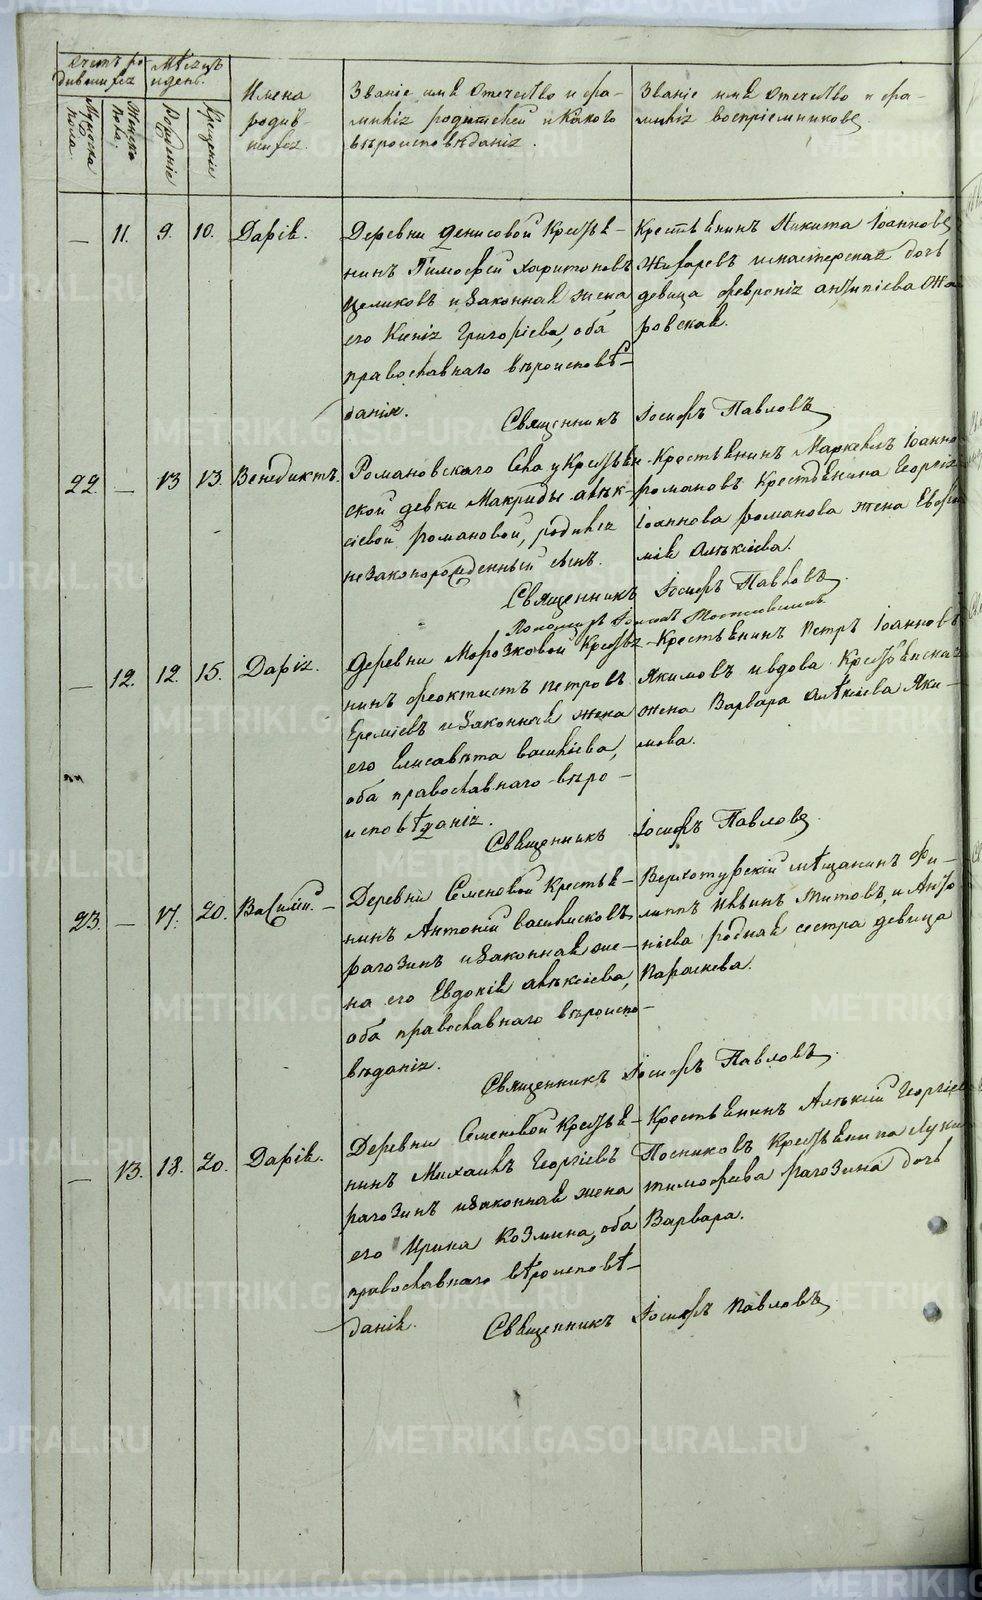 Счетъ ро-
дившихся
Мѣсяцъ
и день.
Мужска
пола.
Женска
пола.
Рожденіе
Крещеніе
Имена
родив-
шихся.
Званіе имя Отечество и фа-
милія родителей и какого
вѣроисповѣданія.
Званіе имя Отечество и фа-
милія воспріемниковъ
— 11. 9. 10. Дарія.
Деревни Денисовой Крестья-
нинъ Тимофей Харитоновъ
Целиковъ и законная жена
его Ксенія Григоріева, оба
православнаго вѣроисповѣ-
данія.
Крестьянинъ Никита Іоанновъ
Жифаревъ и мастерская дочь
девица Февронія Антипіева
ровская.
Священникъ Іосифъ Павловъ
22 — 13 13. Венедиктъ.
Романовскаго Села у Крестьян-
ской девки Макриды Алек-
сіевой Романовой, родился
незаконорожденный сынъ.
Крестьянинъ Маркеллъ Іоанно
Романовъ Крестьянина Георгія
Іоаннова Романова жена Евфи
мія Алексіева.
Священникъ Іосифъ Павловъ
Пономарь
— 12. 12. 15. Дарія.
Деревни Морозковой Крестья-
нинъ Феоктистъ Петровъ
Еремѣевъ и законная жена
его Елисавета Васильева,
оба православнаго вѣро-
исповѣданія.
Крестьянинъ Петръ Іоанновъ
Якимовъ и вдова Крестьянская
жена Варвара Алексіева Яки-
мова.
Священникъ Іосифъ Павловъ
23. — 17. 20. Василій. —
Деревни Семеновой Крестья-
нинъ Антоній Васильевъ
Рагозинъ и законная же-
на его Евдокія Алексіева,
оба православнаго вѣроиспо-
вѣданія.
Верхотурскій мѣщанинъ Фи-
липпъ Ильинъ Титовъ, и Анто
ніева родная сестра девица
Параскева.
Священникъ Іосифъ Павловъ
— 13. 18. 20. Дарія.
Деревни Семеновой Крестья-
нинъ Михаилъ Георгіевъ
Рагозинъ и законная жена
его Ирина Козмина, оба
православнаго вѣроисповѣ-
данія.
Крестьянинъ Алексій Георгіевъ
Посниковъ Крестьянина Луки
Тимофѣева Рагозина дочь
Варвара.
Священникъ Іосифъ Павловъ
METRIKI.GASO-URAL.RU